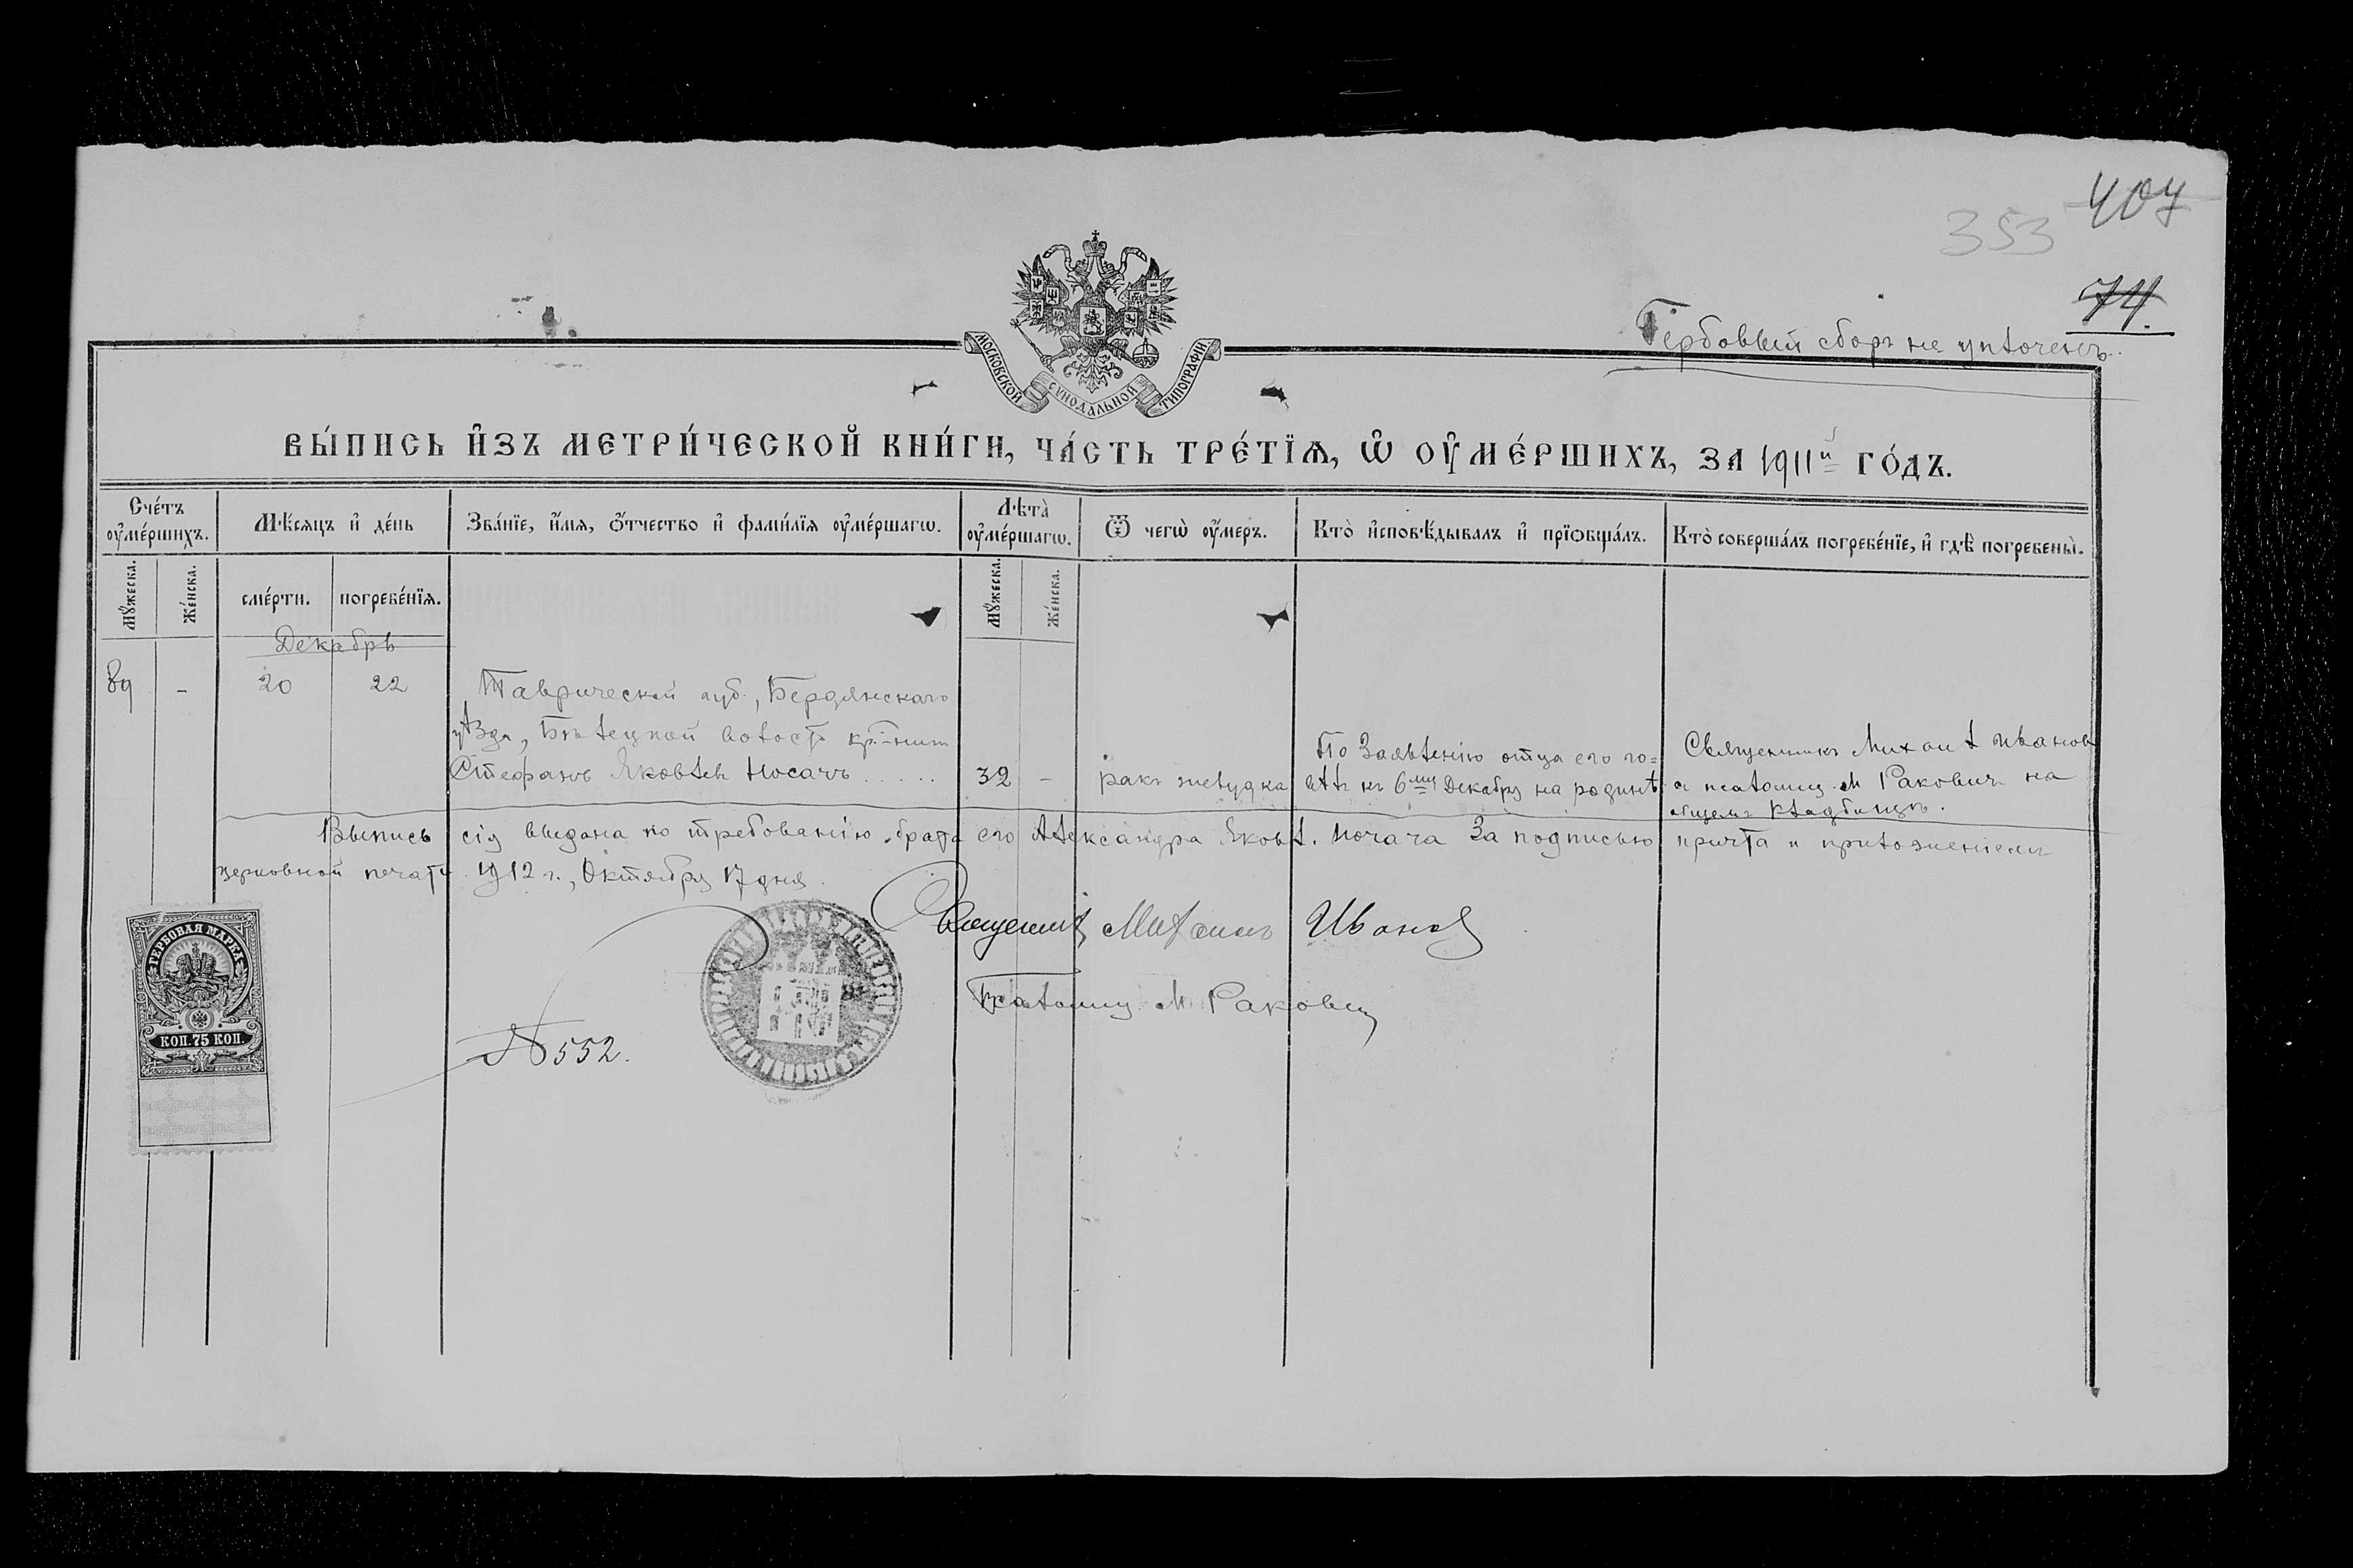 407
353
74.
Гербовый сборъ не уплоченъ.
МОСКОВСКОЙ СѴНОДАЛЬНОЙ ТИПОГРАФІИ
ВЫ́ПИСЬ И҆ЗЪ МЕТРИ́ЧЕСКОЙ КНИ́ГИ, ЧА́СТЬ ТРЕ́ТІѦ, Ѡ҆ ОУ҆МЕ́РШИХЪ, ЗА 1911й ГО́ДЪ.
Сче́тъ оу҆ме́ршихъ.
Мѣ́сѧцъ и҆ де́нь
Зва́нїе, и҆́мѧ, ѻ҆́тчество и҆ фами́лїѧ оу҆ме́ршагѡ.
Лѣта̀ оу҆ме́ршагѡ.
Ѿ чегѡ̀ оу҆́меръ.
Кто̀ и҆сповѣ́дывалъ и҆ прїѻбща́лъ.
Кто̀ соверша́лъ погребе́нїе, и҆ гдѣ̀ погребены̀.
Мꙋ́жеска.
Же́нска.
сме́рти.
погребе́нїѧ.
Мꙋ́жеска.
Же́нска.
Декабрь
89 - 20 22 Таврической губ., Бердянскаго
уѣзда, волости кр-нинъ
Стефанъ Яковлев Носачъ ..... 32 - ракъ желудка
По Заявленію отца его го=
вѣлъ къ 6му Декабру на родинѣ
Священникъ Михаил Иванов
и псаломщ. М Раковичъ на
общемъ кладбищѣ.
Выпись сія выдана по требованію брата его Александра Яковл. Носача За подписью причта и приложеніемъ
церковной печати 1912 г., Октября 17 дня.
Священник Михаилъ Иванов
Псаломщ М. Ракович
№ 552.
ГЕРБОВАЯ МАРКА
КОП. 75 КОП.